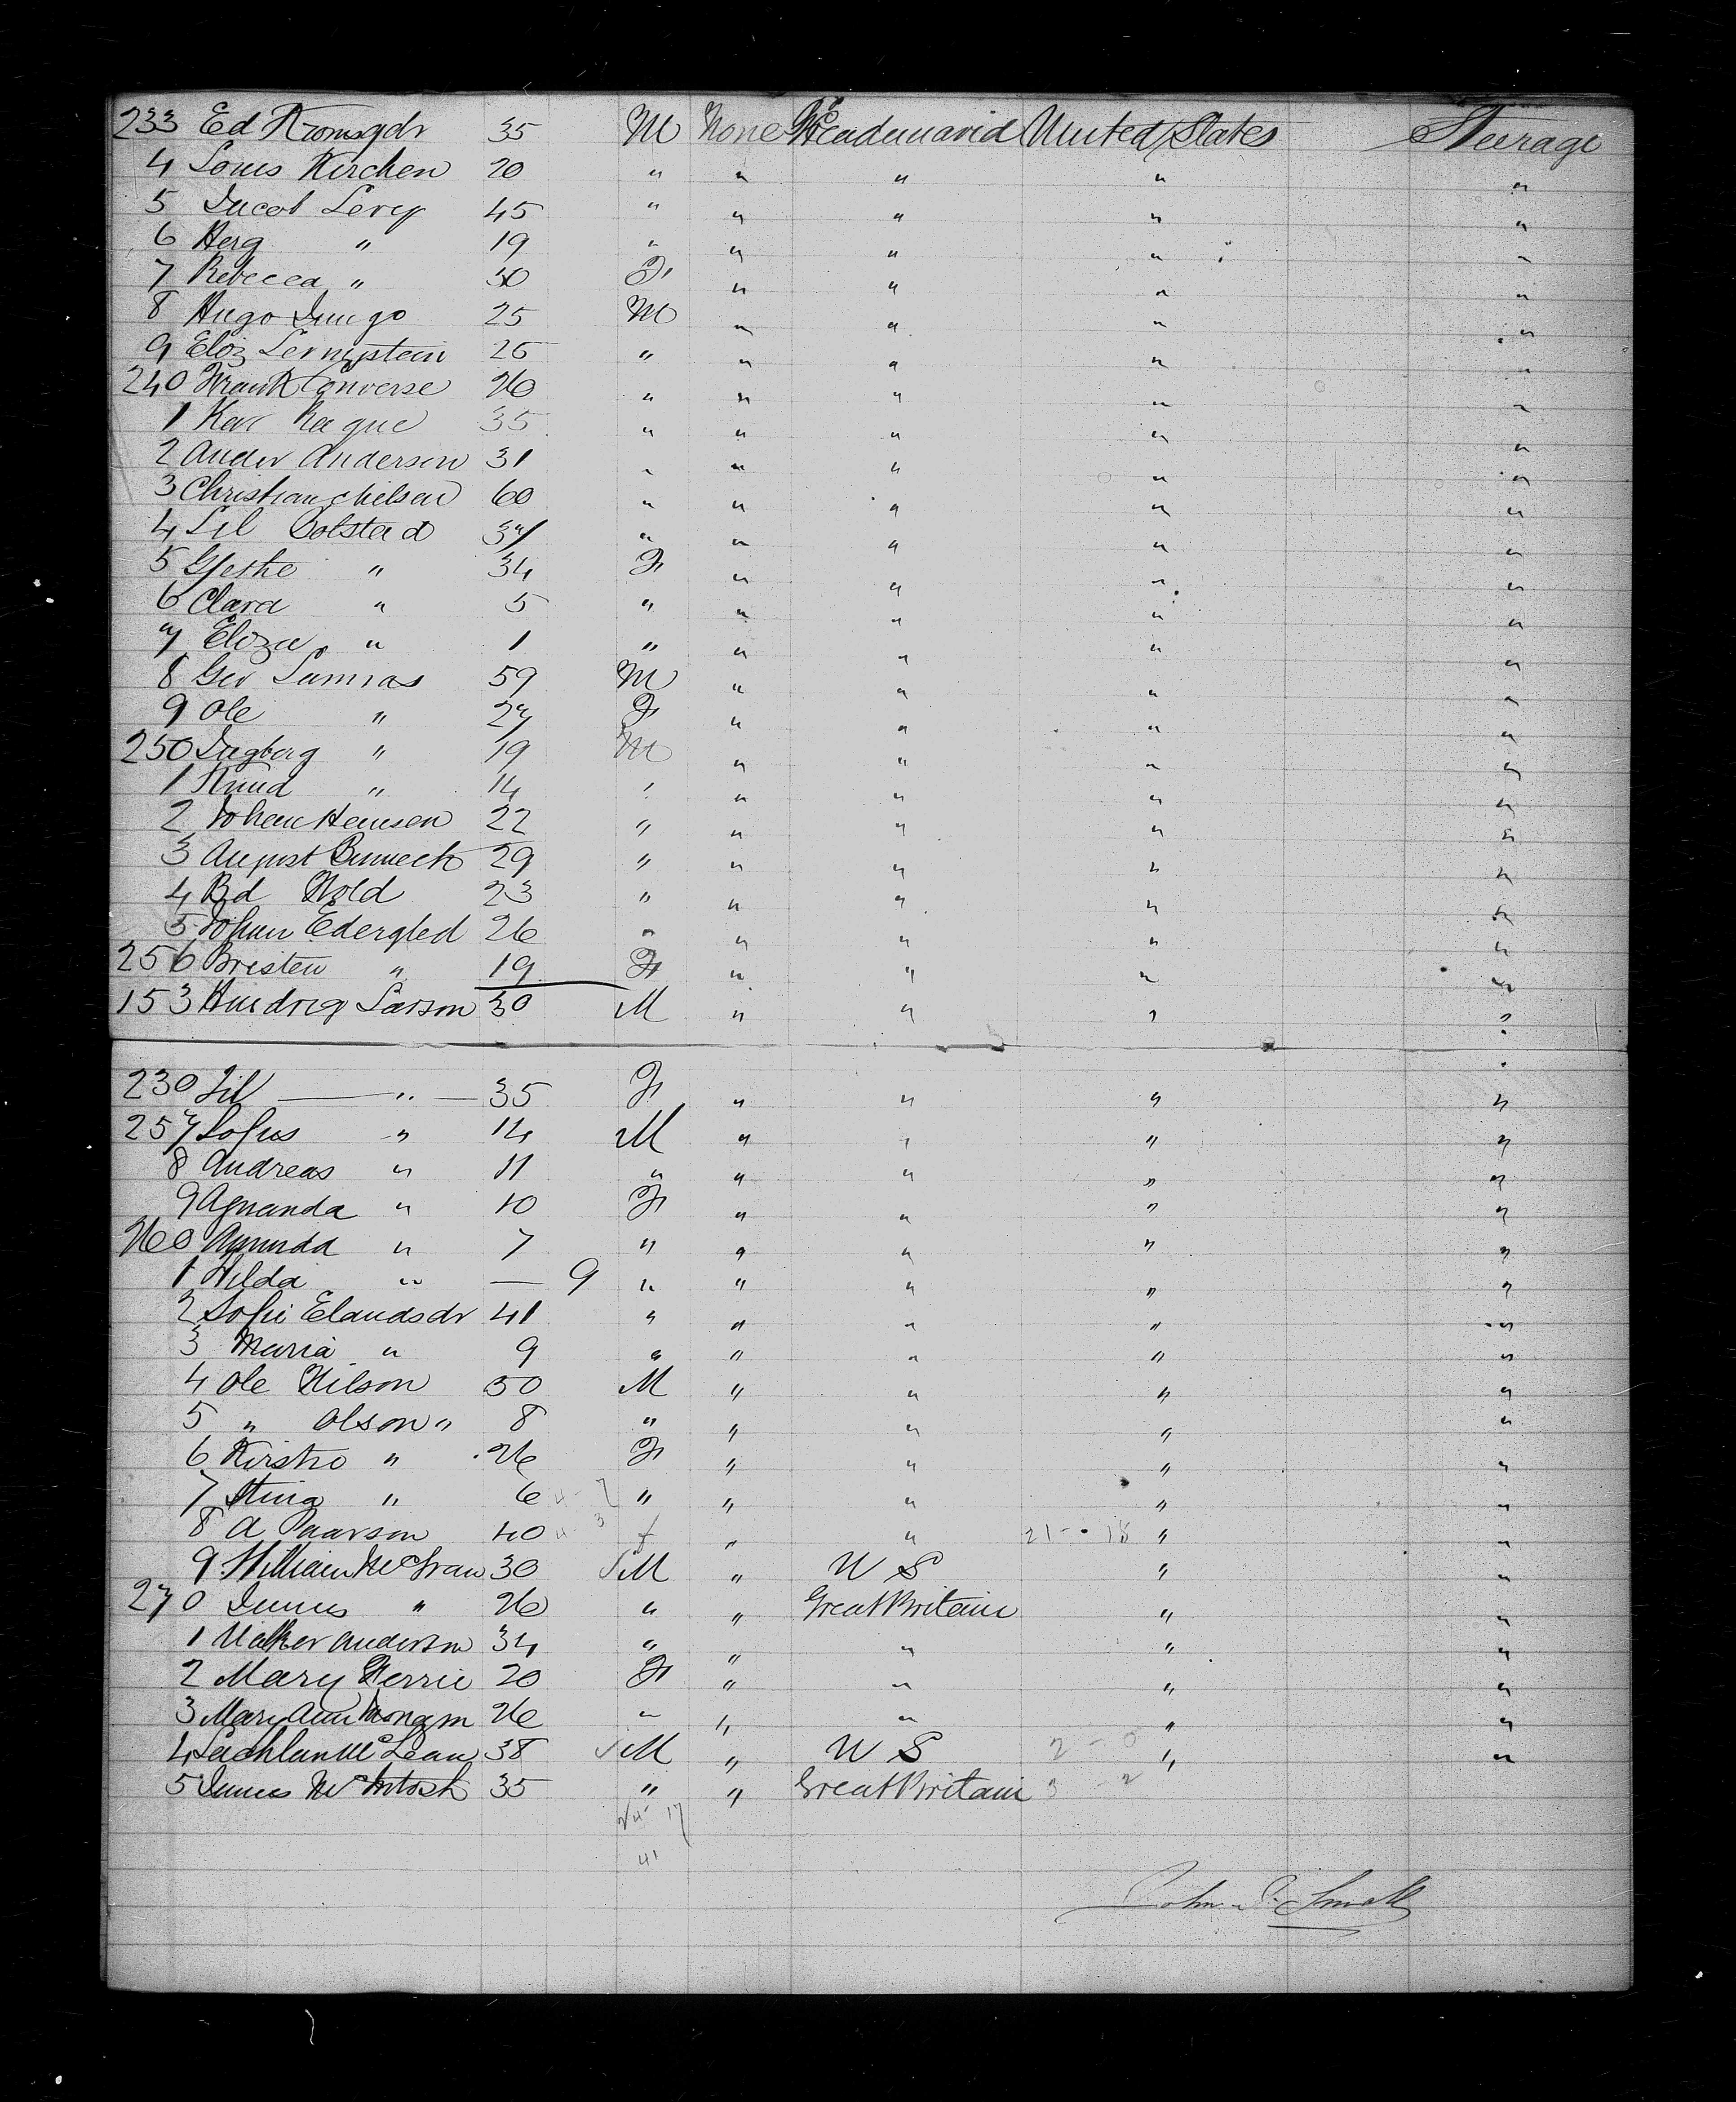 233 Ed Kromsgdr 35 M None United States Steerage
4 Louis Kirchen 20 " " " " "
5 Jacob Levy 45 " " " " "
6 Herg " 19 " " " " "
7 Rebecca " 30 F " " " "
8 Hugo Jungo 25 M " " " "
9 Eloiz 25 " " " " "
240 Frank Converse 26 " " " " "
1 Karl Rague 35 " " " " "
2 Ander Anderson 31 " " " " "
3 Christian Nelsen 60 " " " " "
4 Lil Bolstad 37 " " " " "
5 Gjeske " 34 F " " " "
6 Clara " 5 " " " " "
7 Eloza " 1 " " " " "
8 Gev Samras 59 M " " " "
9 Ole " 27 F " " " "
250 Dagborg " 19 M " " " "
1 Knud " 14 " " " " "
2 Johan Hansen 22 " " " " "
3 August 29 " " " " "
4 Bd Wold 23 " " " " "
5 Johan Edergled 26 " " " " "
256 Bresten " 19 F " " " "
153 Hendrig Larson 30 M " " " "
230 Lil " 35 F " " " "
257 Sofus " 14 M " " " "
8 Andreas " 11 " " " " "
9 Agnanda " 10 F " " " "
260 Amunda " 7 " " " " "
1 Hilda " — 9 " " " " "
2 Sofie Elandsdr 41 " " " " "
3 Maria " 9 " " " " "
4 Ole Nilson 50 M " " " "
5 " Olson " 8 " " " " "
6 Kirstio " 26 F " " " "
7 Stina " 6 4 - 7 " " " " "
8 A Paarson 40 4 - 3 f " " 21 - 18 " "
9 William McGraw 30 M " U S " "
270 James " 26 " " Great Britain " "
1 Walker Anderson 34 " " " " "
2 Mary Kerrie 20 F " " " "
3 Mary Ann 26 " " " " "
4 Lachlan McLean 38 M " U S 2 - 0 " "
5 James McIntosh 35 " " Great Britain 3 - 2
24 - 17
41
John S. Small